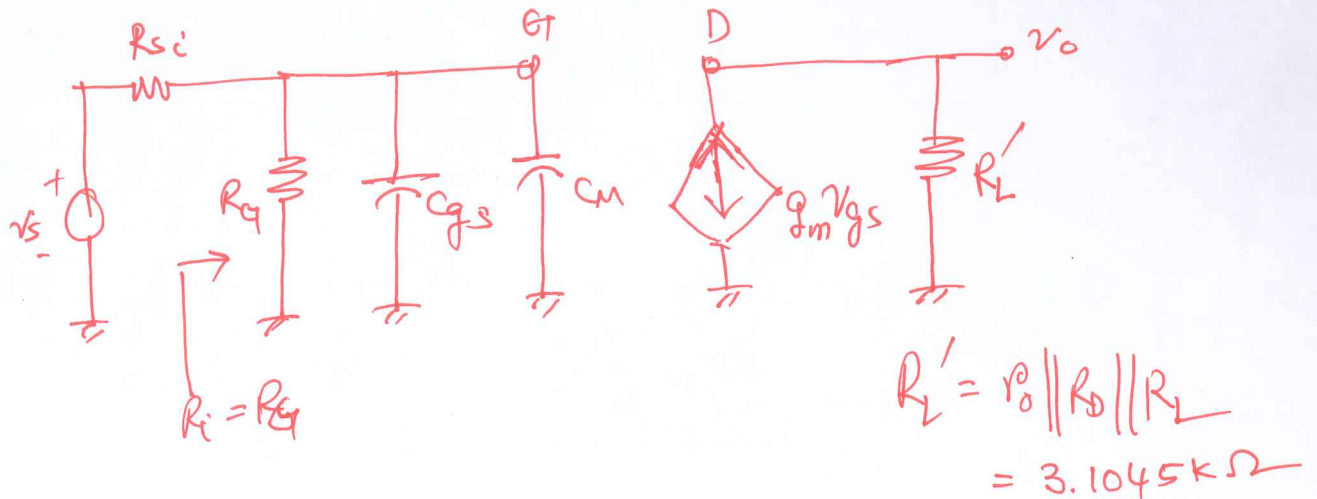 Rsi
G
D
vo
+
vs
-
RG
Cgs
CM
gmvgs
RL'
Ri = RG
RL' = ro || RD || RL
= 3.1045 kΩ